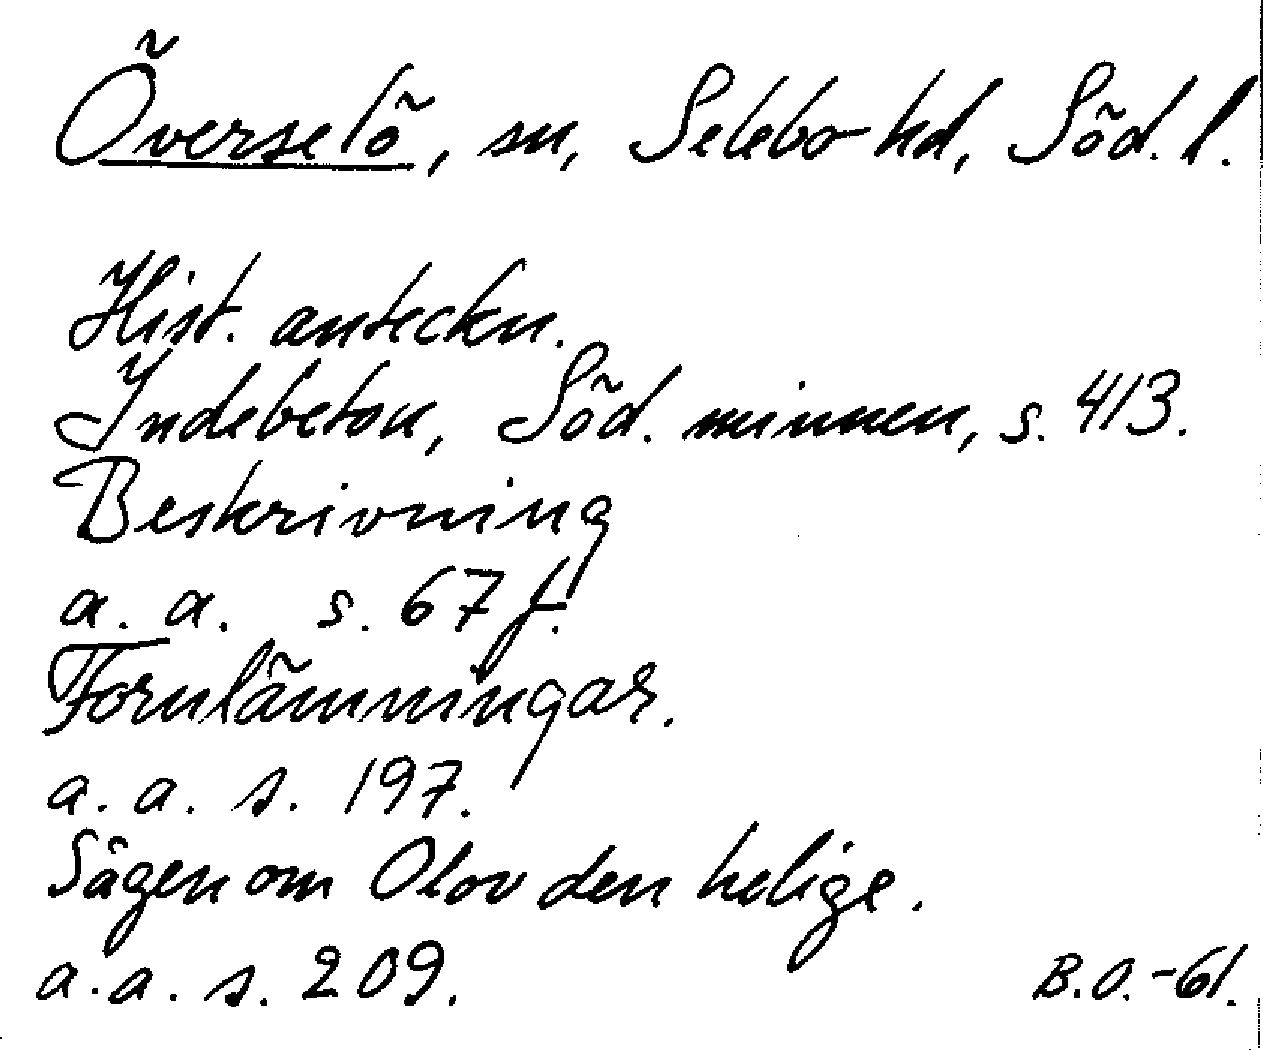 Överselö, sn, Selebo hd, Söd. l.
Hist. anteckn.
Indebetou, Söd. minnen, s. 413.
Beskrivning
a. a. s. 67 f.
Fornlämningar.
a. a. s. 197.
Sägen om Olov den helige.
a. a. s. 209.
B.O.-61.